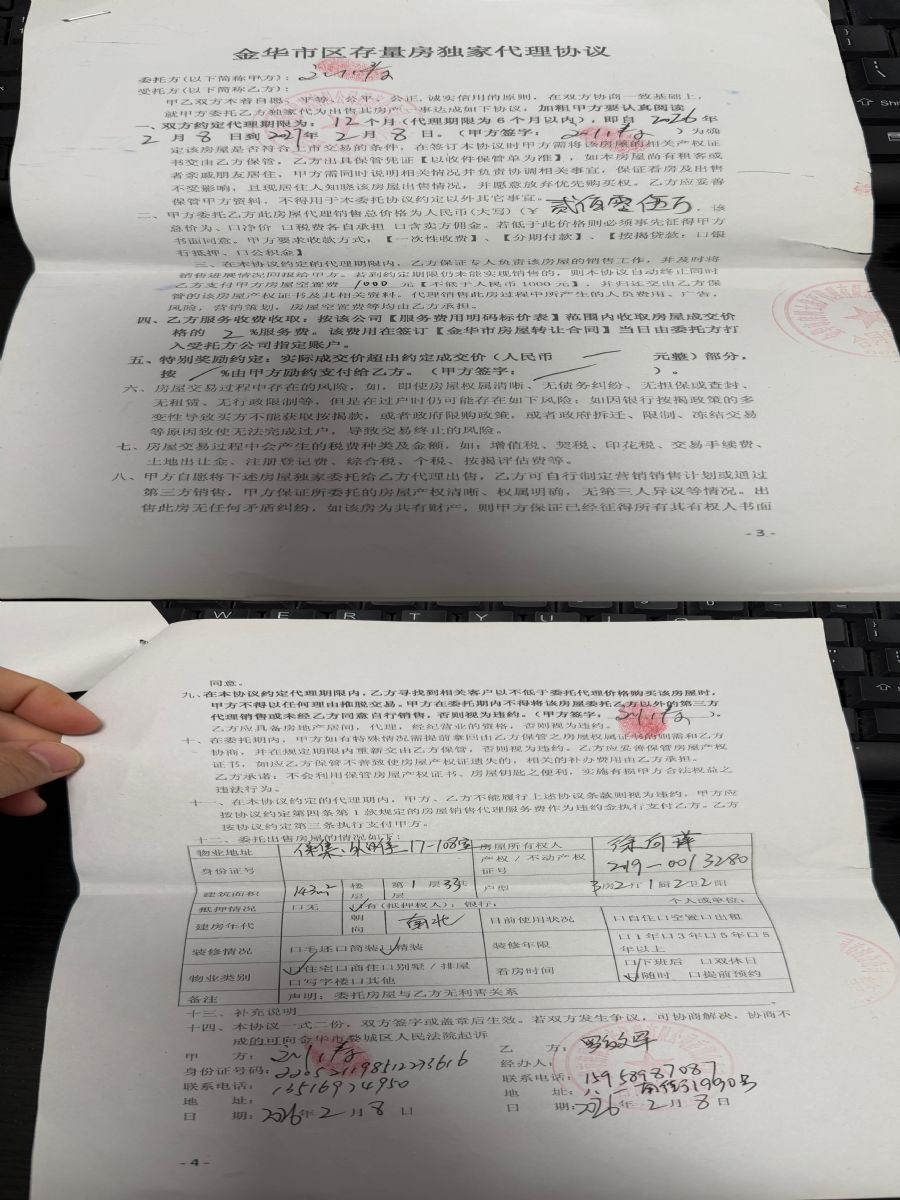 金华市区存量房独家代理协议
委托方(以下简称甲方):
受托方(以下简称乙方):
甲乙双方本着自愿、平等、公平、公正,诚实信用的原则,在双方协商一致基础上,
就甲方委托乙方独家代为出售其房产 事达成如下协议,加粗甲方要认真阅读
一、双方约定代理期限为:12个月(代理期限为6个月以内),即自2026年
2月8日到2027年2月8日。(甲方签字: )为确
定该房屋是否符合上市交易的条件,在签订本协议时甲方需将该房屋的相关产权证
书交由乙方保管,乙方出具保管凭证【以收件保管单为准】,如本房屋尚有租客或
者亲戚朋友居住,甲方需同时说明相关情况并负责协调相关事宜,保证看房及出售
不受影响,且现居住人知晓该房屋出售情况,并愿意放弃优先购买权。乙方应妥善
保管甲方资料,不得用于本委托协议约定以外其它事宜。
二、甲方委托乙方此房屋代理销售总价格为人民币(大写)(¥ 贰佰零伍万 ,该
总价为、口净价 口税费各自承担 口含卖方佣金。若低于此价格则必须事先征得甲方
书面同意。甲方要求收款方式,【一次性收费】、【分期付款】、【按揭贷款:口银
行抵押、口公积金】
三、在本协议约定的代理期限内,乙方保证专人负责该房屋的销售工作,并及时将
销售进展情况回报给甲方。若到约定期限仍未能实现销售的,则本协议自动终止同时
乙方支付甲方房屋空置费 1000 元【不低于人民币1000元】,并归还交由乙方保
管的该房屋产权证书及其相关资料。代理销售此房过程中所产生的人员费用、广告,
风险,营销策划,房屋空置费等均由乙方承担。
四、乙方服务收费收取:按该公司【服务费用明码标价表】范围内收取房屋成交价
格的 2 %服务费。该费用在签订【金华市房屋转让合同】当日由委托方打
入受托方公司指定账户。
五、特别奖励约定:实际成交价超出约定成交价(人民币 — 元整)部分,
按 / %由甲方励约支付给乙方。(甲方签字: )。
六、房屋交易过程中存在的风险,如,即使房屋权属清晰、无债务纠纷、无担保或查封、
无租赁、无行政限制等,但是在过户时仍可能存在如下风险:如因银行按揭政策的多
变性导致买方不能获取按揭款,或者政府限购政策,或者政府拆迁、限制、冻结交易
等原因致使无法完成过户,导致交易终止的风险。
七、房屋交易过程中会产生的税费种类及金额,如:增值税、契税、印花税、交易手续费、
土地出让金、注册登记费、综合税、个税、按揭评估费等。
八、甲方自愿将下述房屋独家委托给乙方代理出售,乙方可自行制定营销销售计划或通过
第三方销售,甲方保证所委托的房屋产权清晰、权属明确,无第三人异议等情况。出
售此房无任何矛盾纠纷,如该房为共有财产,则甲方保证已经征得所有其有权人书面
-3-
同意。
九、在本协议约定代理期限内,乙方寻找到相关客户以不低于委托代理价格购买该房屋时,
甲方不得以任何理由推脱交易。甲方在委托期内不得将该房屋委托乙方以外的第三方
代理销售或未经乙方同意自行销售,否则视为违约。(甲方签字: )。
乙方应具备房地产居间,代理,经纪营业的资格,否则视为违约。
十、在委托期内,甲方如有特殊情况需提前拿回由乙方保管之房屋权属证书的则需和乙方
协商,并在规定期限内重新交由乙方保管,否则视为违约。乙方应妥善保管房屋产权
证书,如应乙方保管不善致使房屋产权证遗失的,相关的补办费用由乙方承担。
乙方承诺:不会利用保管房屋产权证书、房屋钥匙之便利,实施有损甲方合法权益之
违法行为。
十一、在本协议约定的代理期内,甲方、乙方不能履行上述协议条款则视为违约,甲方应
按协议约定第四条第1款规定的房屋销售代理服务费作为违约金执行支付乙方。乙方
按协议约定第三条执行支付甲方。
十二、委托出售房屋的情况如下:
物业地址 17-108室 房屋所有权人 徐向萍
身份证号 产权/不动产权证号 219-0013280
建筑面积 143m² 楼层 第1层33共层 户型 3房2厅1厨2卫2阳
抵押情况 口无 口有(抵押权人):银行: 个人或单位:
建房年代 朝向 南北 目前使用状况 口自住口空置口出租
装修情况 口毛坯口简装口精装 装修年限 口1年口3年口5年口5年以上
物业类别 口住宅口商住口别墅/排屋口写字楼口其他 看房时间 口下班后 口双休日 口随时 口提前预约
备注 声明:委托房屋与乙方无利害关系
十三、补充说明
十四、本协议一式二份,双方签字或盖章后生效。若双方发生争议,可协商解决,协商不
成的可向金华市婺城区人民法院起诉
甲 方: 乙 方:
身份证号码: 经办人:
联系电话:13516974950 联系电话:15958987087
地 址: 地 址:
日 期:2026年2月8日 日 期:2026年2月8日
-4-